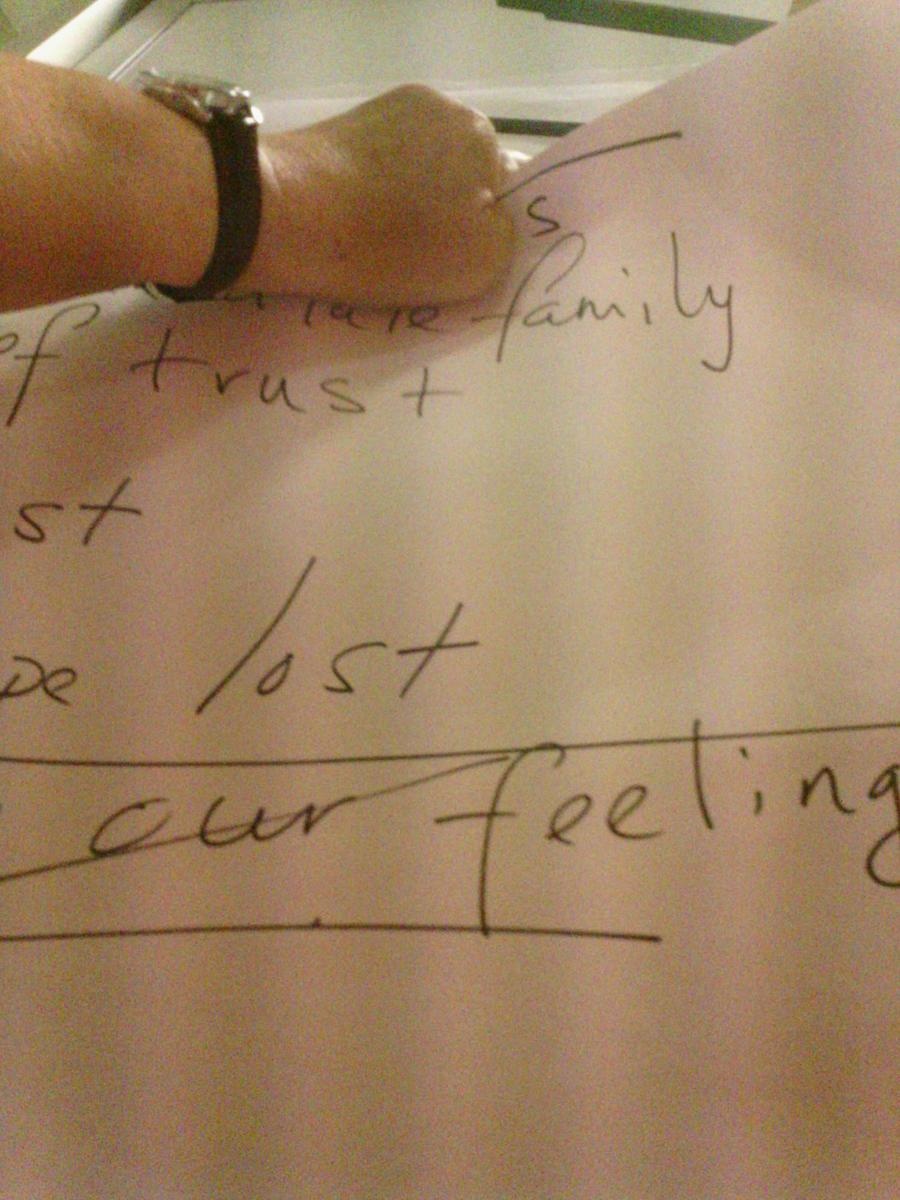 s
family
of trust
st
lost
our feeling